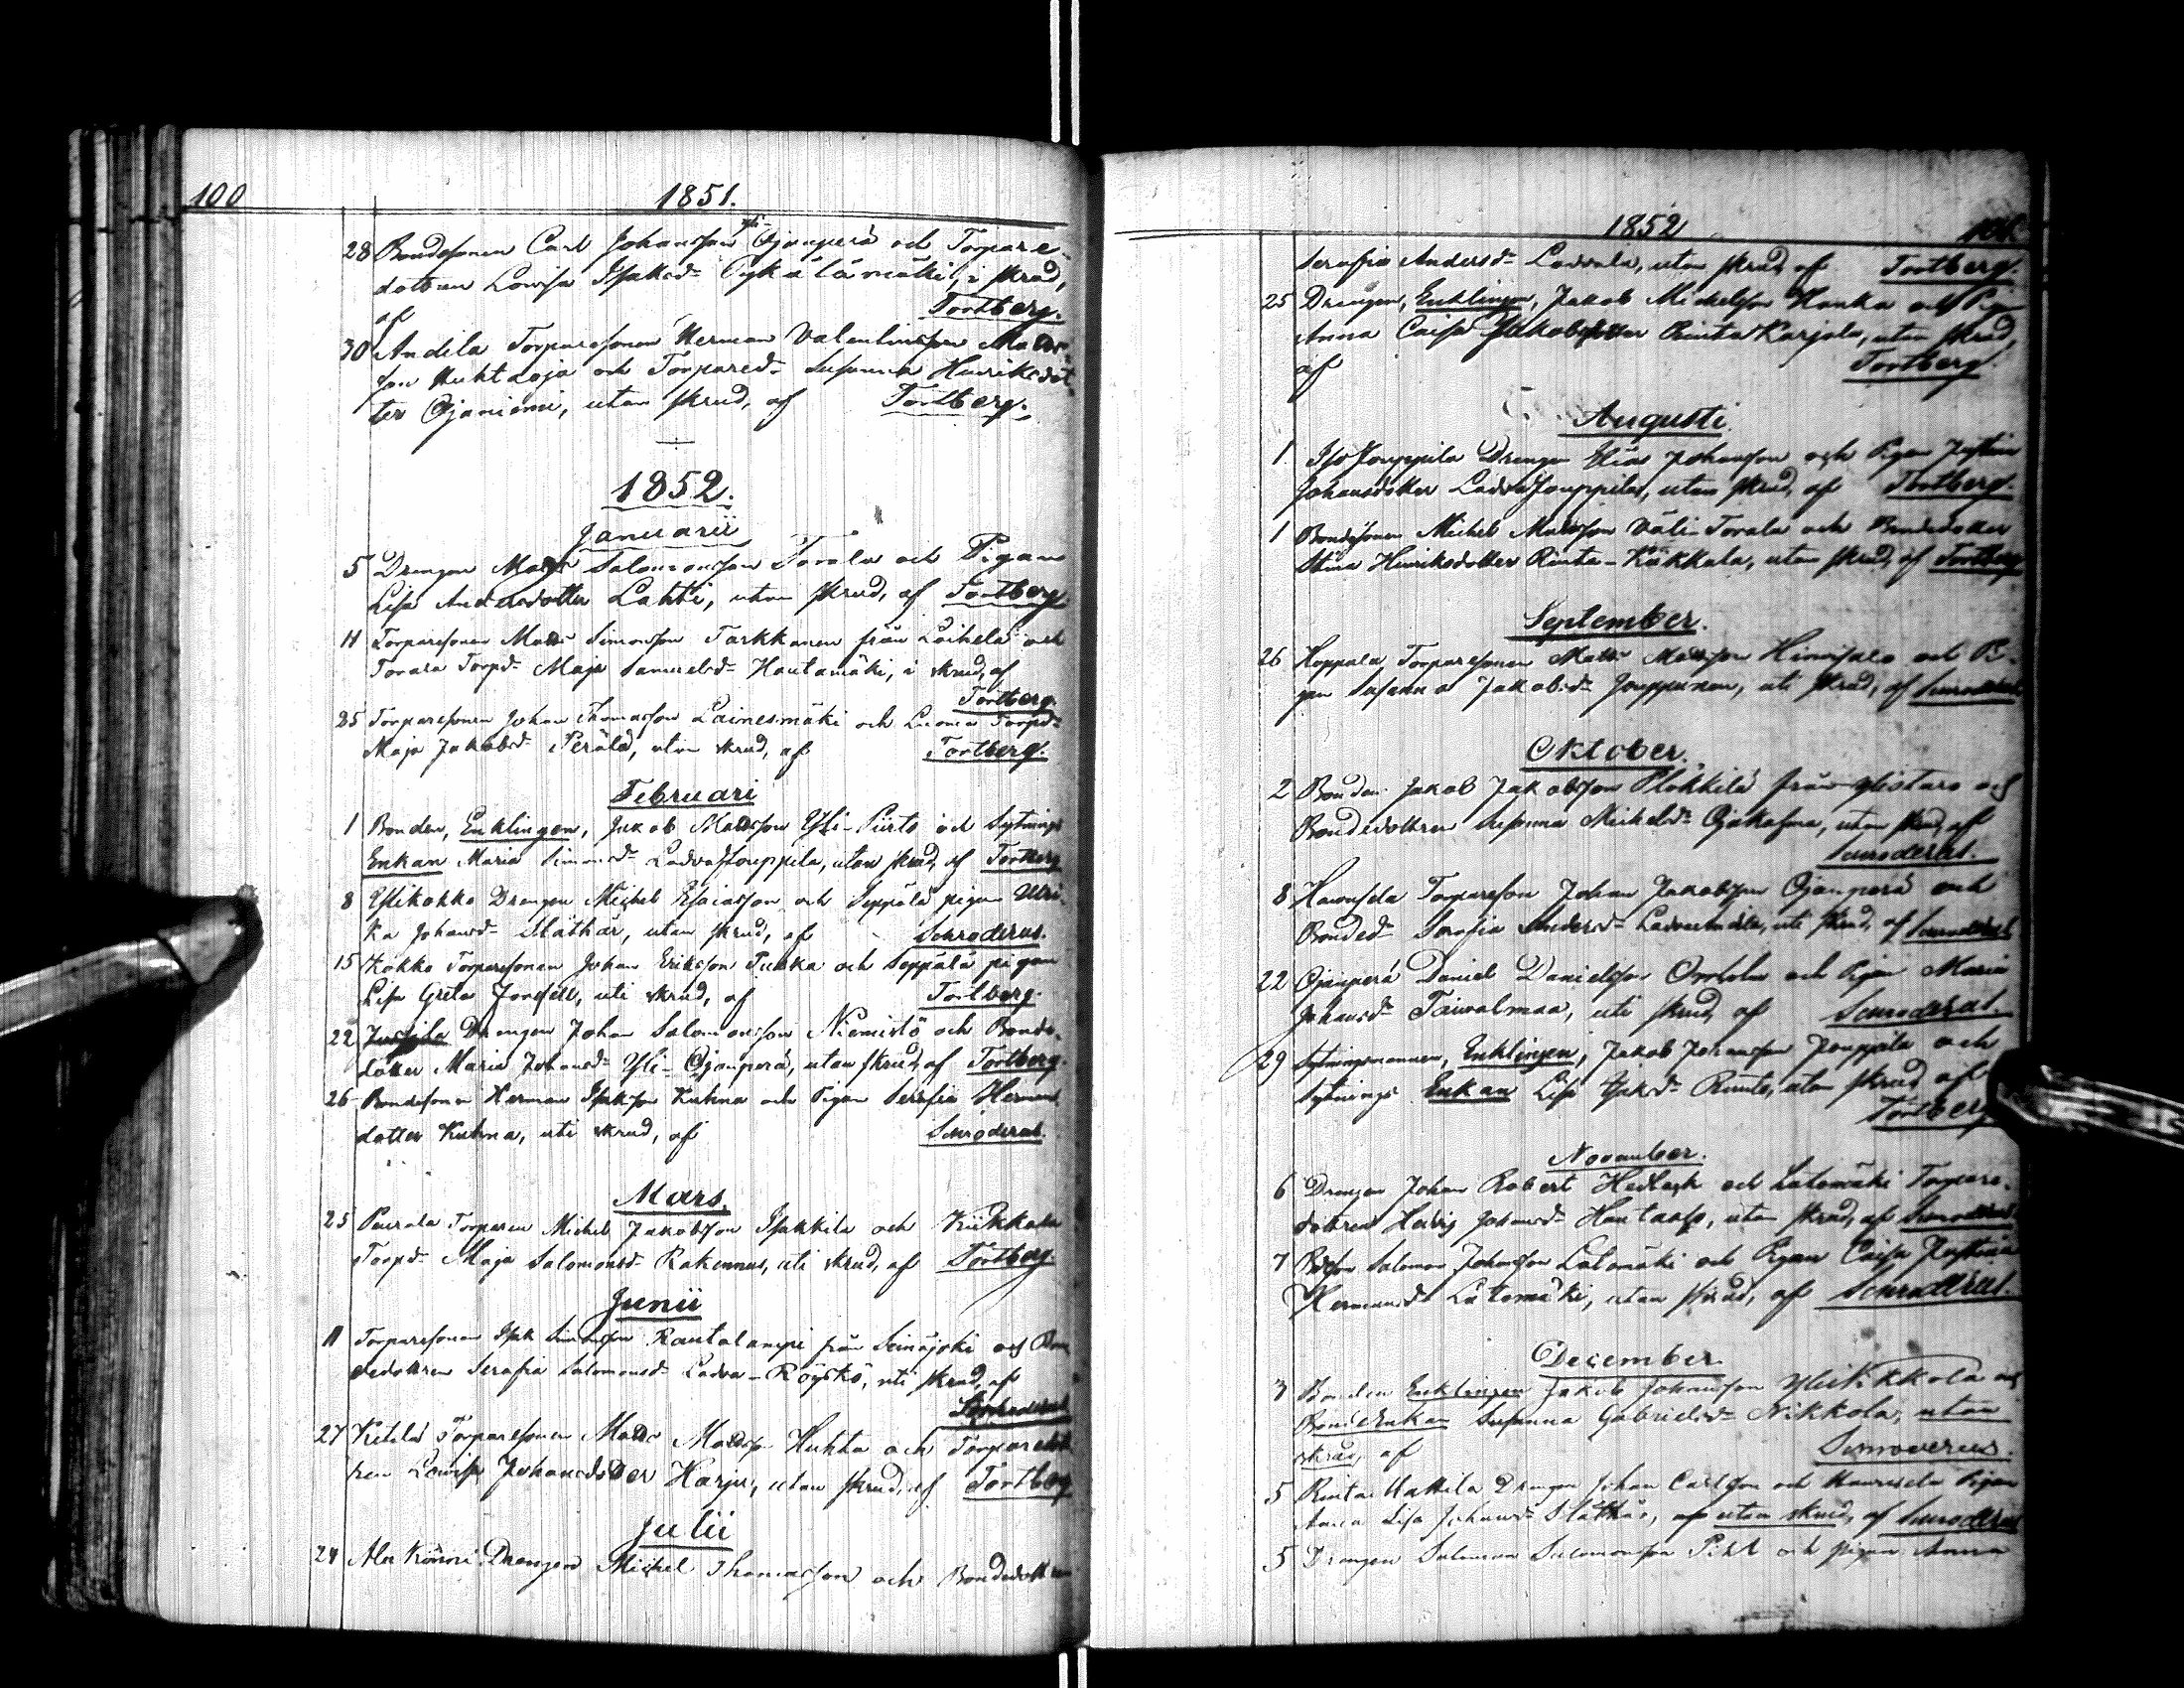 100
1851.
28 Bondesonen Carl Johansson Yli- Ojanperä och Torpare-
dottren Lovisa Isaksd- Pykälämäki, i skrud,
af Tortberg.
30 Andila Torparesonen Herman Valentinsson Matts-
son Huhtaoja och Torpared- Susanna Henriksdot-
ter Ojaniemi, utan skrud, af Tortberg.
1852.
Januarii
5 Drengen Matts Salomonsson Torala och Pigan
Lisa Andersdotter Lahti, utan skrud, af Tortberg
11 Torparesonen Matts Simonsson Tarkkanen från Laihela och
Torala Torpd- Maja Samuelsd- Hautamäki, i skrud, af
Tortberg.
25 Torparesonen Johan Thomasson Lainesmäki och Luoma Torpd-
Maja Jakobsd- Perälä, utan skrud, af Tortberg.
Februari
1 Bonden, Enklingen, Jakob Mattsson Yli-Piirto och Sytnings
Enkan Maria Simonsd- LadvaJouppila, utan skrud, af Tortberg
8 Ylikokko Drengen Michel Esaiasson och Seppälä pigan Ulri-
ka Johansd- Släthär, utan skrud, af Schroderus.
15 Kokko Torparesonen Johan Eriksson Tuska och Seppälä pigan
Lisa Greta Jonsell, uti skrud, af Tortberg.
22 Drengen Johan Salomonsson Niemistö och Bonde-
dotter Maria Johansd- Yli-Ojanperä, utan skrud, af Tortberg.
26 Bondesonen Herman Isaksson Kuhna och Pigan Serafia Hermans
dotter Kuhna, uti skrud, af Schroderus.
Mars.
25 Torparen Michel Jakobsson Isakkila och Kiikkala
Torpd- Maja Salomonsd- Rakennus, uti skrud, af Tortberg.
Junii
11 Torparesonen Isak Simonsson Rautalampi från Seinäjoki och Bon
dedottren Serafia Salomonsd- Ladva-Röyskö, uti skrud, af
Schroderus
27 Torparesonen Matts Mattsson Huhta och Torparedott
ren Lovisa Johansdotter Harju, utan skrud, af Tortberg
Julii
24 Ala Könni Drengen Michel Thomasson och Bondedottren
1852
101.
Serafia Andersd- Ladvala, utan skrud, af Tortberg.
25 Drengen, Enklingen, Jakob Michelsson Hanka och Pigan
Anna Caisa Jakobsdotter Rinta Karjala, utan skrud,
af Tortberg.
Augusti
1 IsoJouppila Drengen Elias Johansson och Pigan Justina
Johansdotter LadvaJouppila, utan skrud, af Tortberg.
1 Bondesonen Michel Mattsson Väli-Torala och Bondedotter
Stina Henriksdotter Rinta-Kiikkala, utan skrud, af Tortberg
September.
26 Koppala Torparesonen Matts Mattsson Hirvisalo och Pi-
gan Susanna Jakobsd- Jouppinen, uti skrud, af Schroderus
Oktober.
2 Bonden Jakob Jakobsson Plökkilä från Ylistaro och
Bondedottren Susanna Michelsd- Ojakasma, utan skrud, af
Schroderus.
8 Hanuksela Torpareson Johan Jakobsson Ojanperä och
Bonded- Serafia Andersd- uti skrud, af Schroderus
22 Ojanperä Daniel Danielsson och Pigan Maria
Johansd- Taivalmaa, uti skrud, af Schroderus.
29 Sytningsmannen, Enklingen, Jakob Johansson Jouppila och
Sytnings Enkan Lisa Isaksd- Rinta, utan skrud, af
Tortberg
November.
6 Drengen Johan Robert och Latomäki Torpare-
dottren Hedvig Johansd- Hautaaho, utan skrud, af Schroderus
7 Salomon Johansson Latomäki och Pigan Caisa Justina
Hermansd- Latomäki, utan skrud, af Schroderus.
December.
3 Bonden Enklingen Jakob Johansson YliNikkola och
BondeEnkan Susanna Gabrielsd- Nikkola, utan
skrud, af Schroderus.
5 Rinta Mattila Drengen Johan Carlsson och Hanuksela Pigan
Anna Lisa Johansd- Släthär, utan skrud, af Schroderus
5 Drengen Salomon Salomonsson Pihl och pigan Anna